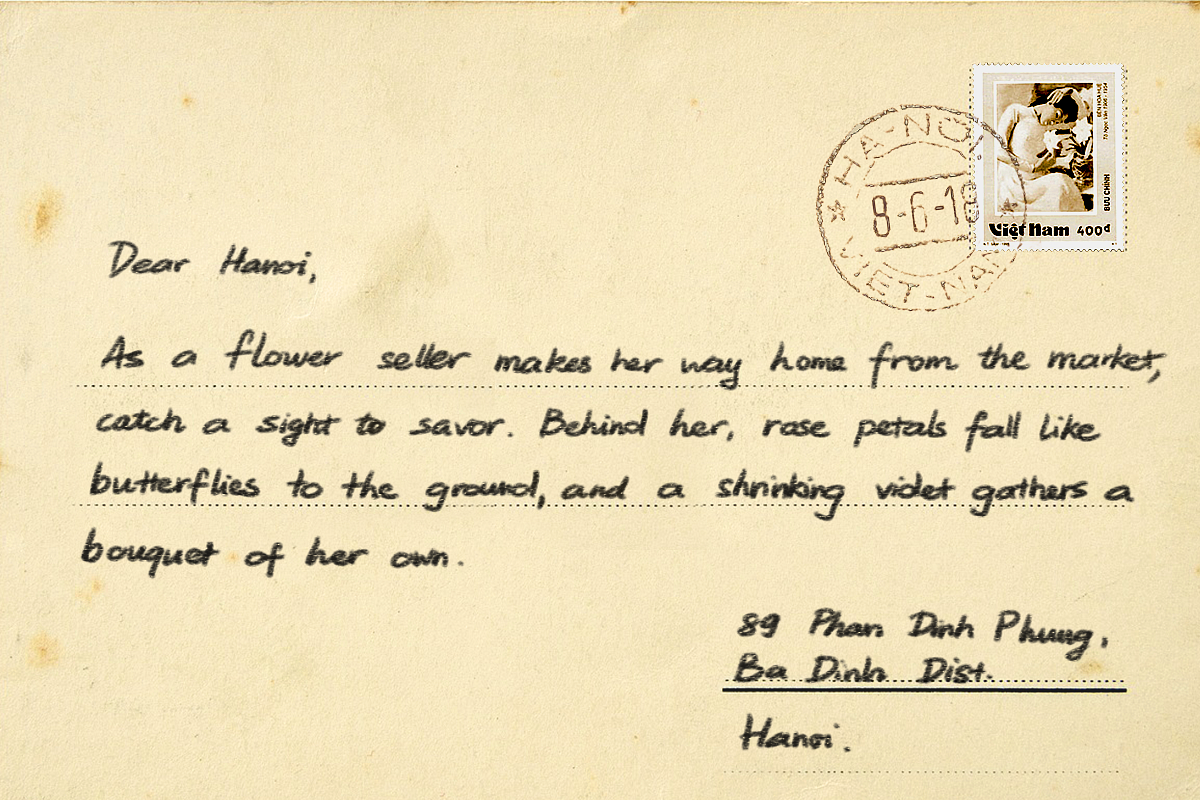 HA-NOI
8-6-18
VIET-NAM
BƯU CHÍNH
Việt Nam 400đ
Dear Hanoi,
As a flower seller makes her way home from the market,
catch a sight to savor. Behind her, rose petals fall like
butterflies to the ground, and a shrinking violet gathers a
bouquet of her own.
89 Phan Dinh Phung,
Ba Dinh Dist.
Hanoi.